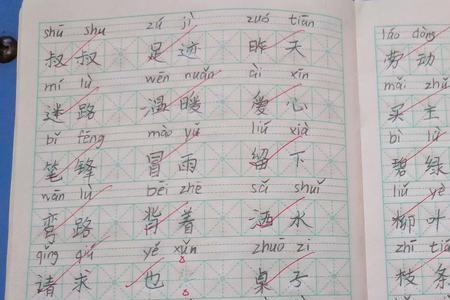 shū shu zú jì zuó tiān láo dòng
叔叔 足迹 昨天 劳动
mí lù wēn nuǎn ài xīn mǎi zhǔ
迷路 温暖 爱心 买主
bǐ fēng mào yǔ liú xià bì lǜ
笔锋 冒雨 留下 碧绿
wān lù bēi zhe sǎ shuǐ liǔ yè
弯路 背着 洒水 柳叶
qǐng qiú yě xǔn zhuō zi zhī tiá
请求 也 桌子 枝条